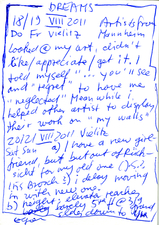 DREAMS
18/19 VIII 2011 Artists from
Do Fr Vielitz Mannheim
looked @ my art, didn't
like/appreciate/get it. I
told myself "... you'll see
and regret" to have me
"neglected". Meanwhile I
helped other artist to display
their work on "my walls"
20/21 VIII 2011 Vielitz
Sat Sun a) I have a new girl-
friend, but out of
sick for my old one
I delay moving
in with new one.
height; elevate
barely 5 ft @
older, down to